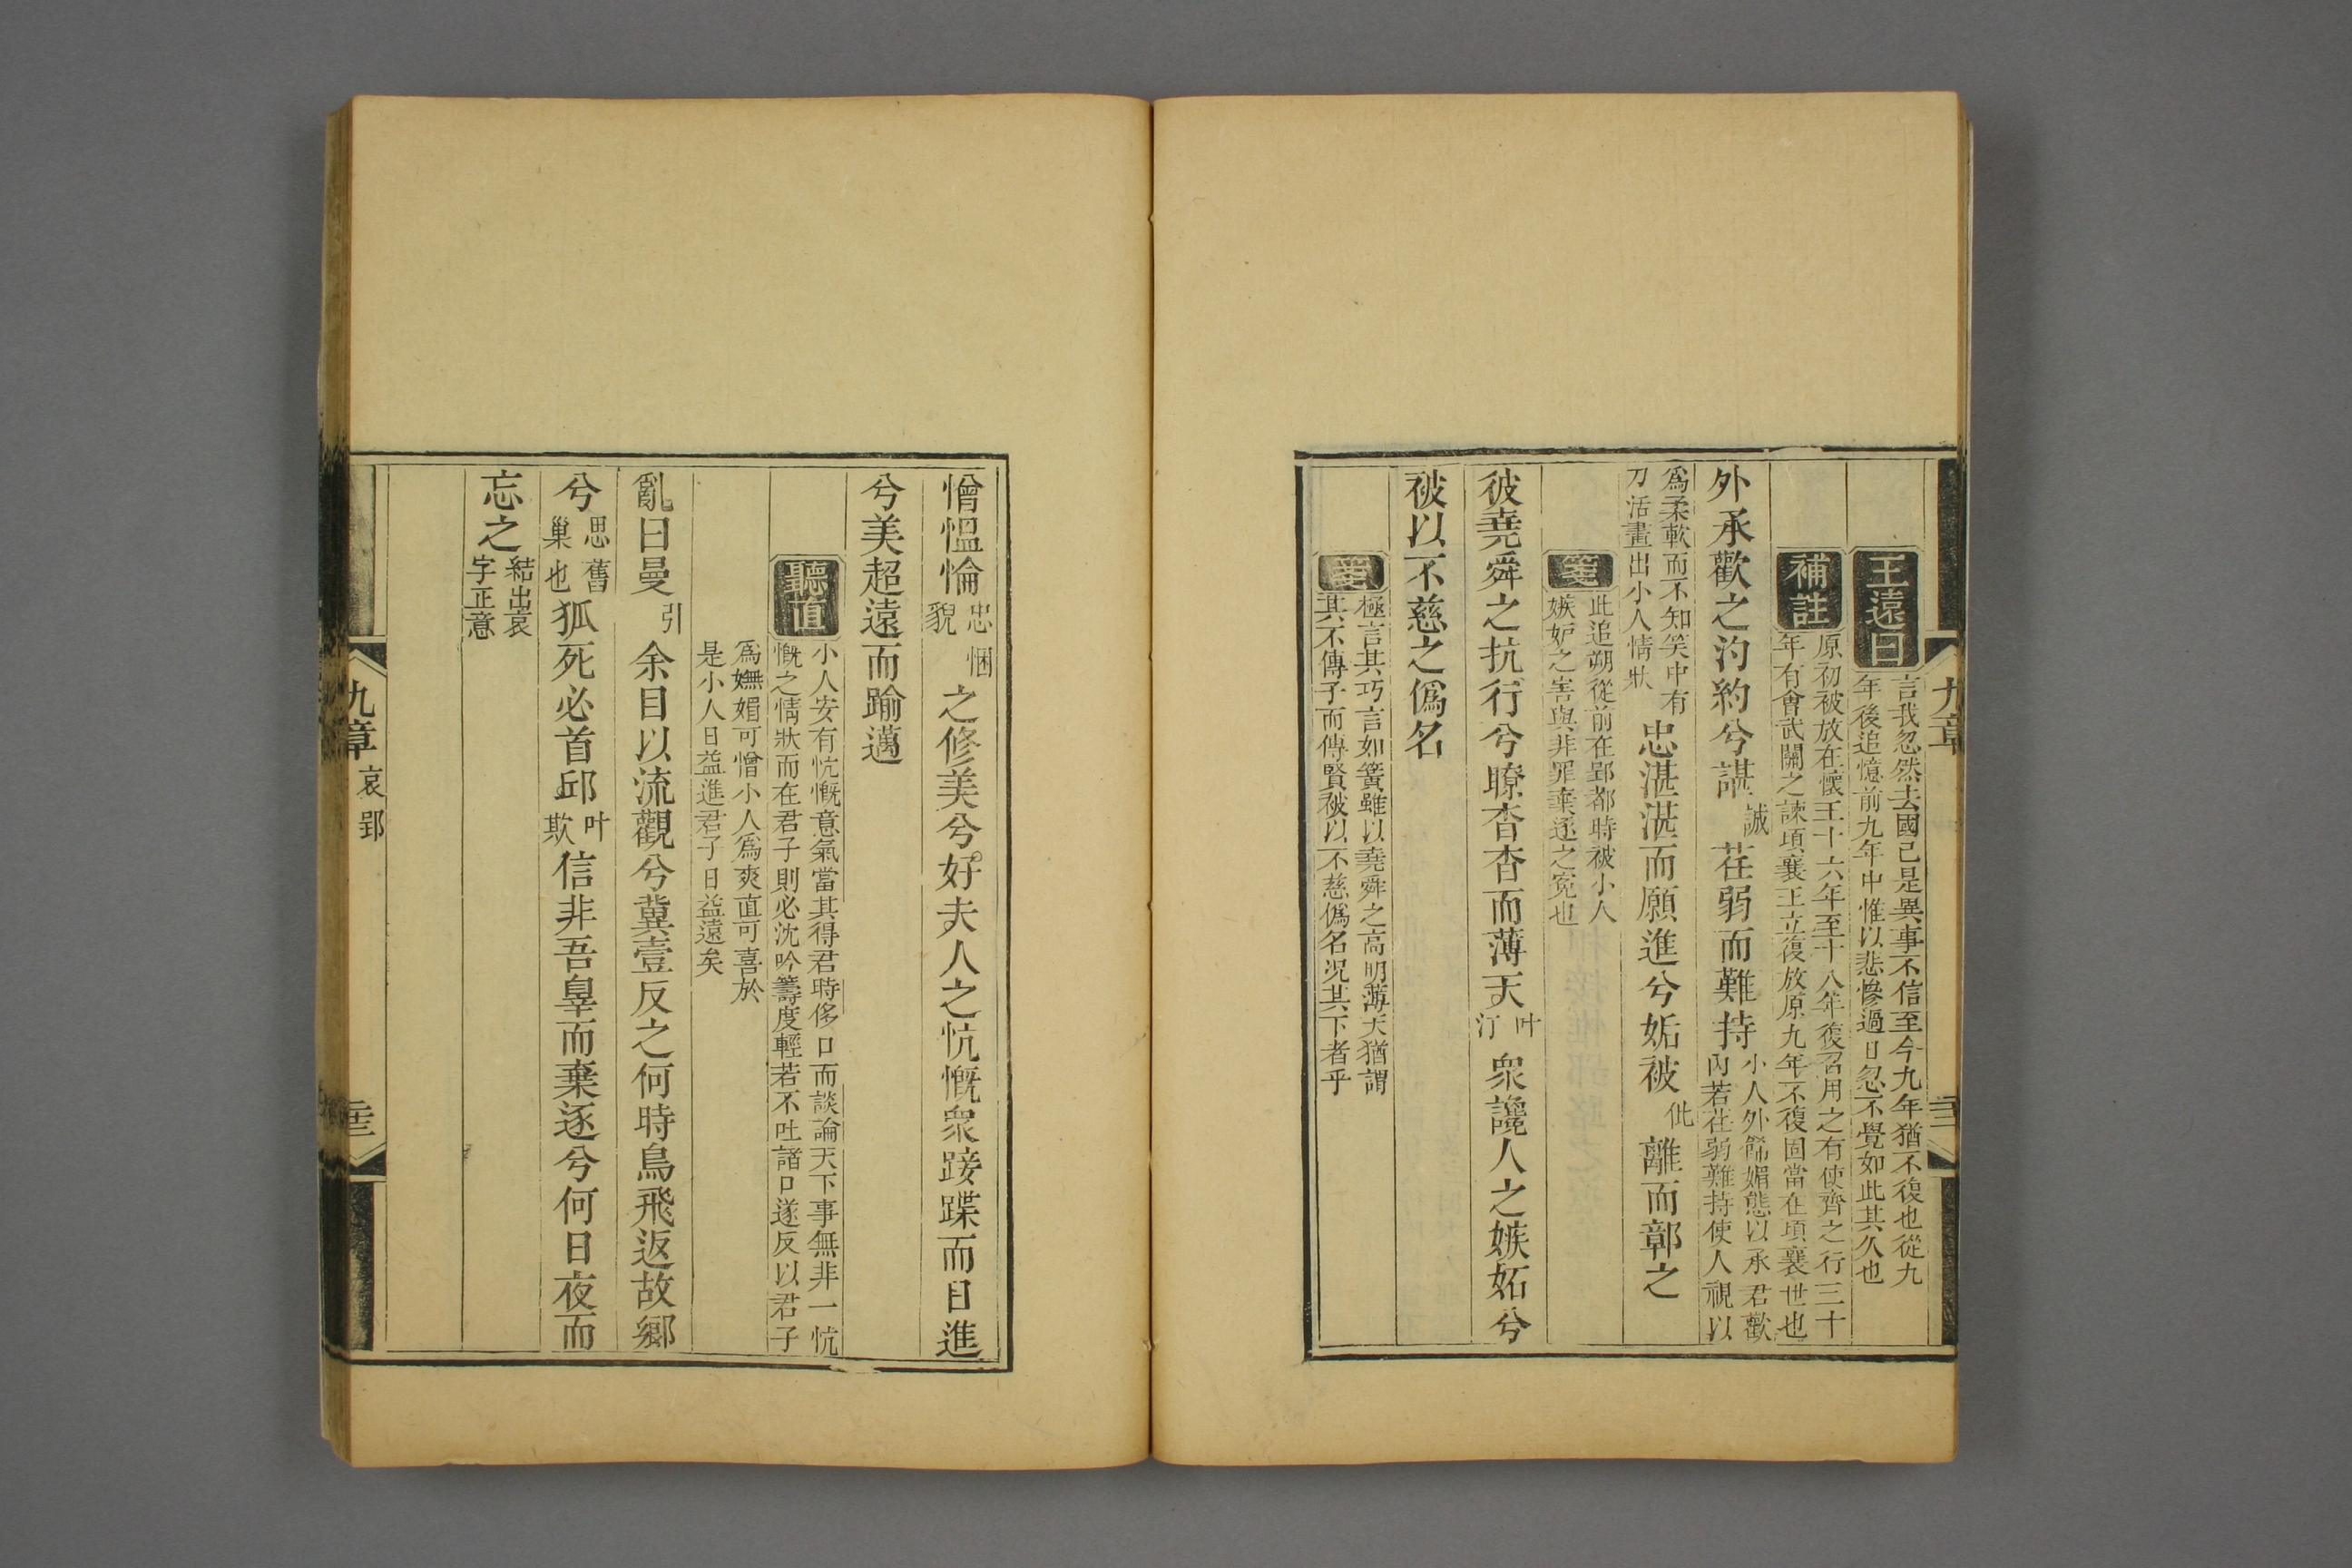 王遠曰 言我忽然去國已是異事不信至今九年猶不復也從九
年後追憶前九年中惟以悲慘過日忽不覺如此其久也
補註 原初被放在懷王十六年至十八年復召用之有使齊之行三十
年有會武關之諫頃襄王立復放原九年不復固當在頃襄世也
外承歡之汋約兮諶 誠 荏弱而難持 小人外飾媚態以承君歡
內若荏弱難持使人視以
爲柔軟而不知笑中有
刀活畫出小人情狀 忠湛湛而願進兮妬被 仳 離而鄣之
箋 此追朔從前在郢都時被小人
嫉妒之害與非罪棄逐之冤也
彼堯舜之抗行兮瞭杳杳而薄天 叶
汀 衆讒人之嫉妬兮
被以不慈之僞名
箋 極言其巧言如簧雖以堯舜之高明薄天猶謂
其不傳子而傳賢被以不慈僞名況其下者乎
憎慍惀 忠悃
貌 之修美兮好夫人之忼慨衆踥蹀而日進
兮美超遠而踰邁
聽直 小人安有忼慨意氣當其得君時侈口而談論天下事無非一忼
慨之情狀而在君子則必沈吟籌度輕若不吐諸口遂反以君子
爲嫵媚可憎小人爲爽直可喜於
是小人日益進君子日益遠矣
亂曰曼 引 余目以流觀兮冀壹反之何時鳥飛返故鄉
兮 思舊
巢也 狐死必首邱 叶
欺 信非吾辠而棄逐兮何日夜而
忘之 結出哀
字正意
九章 哀郢